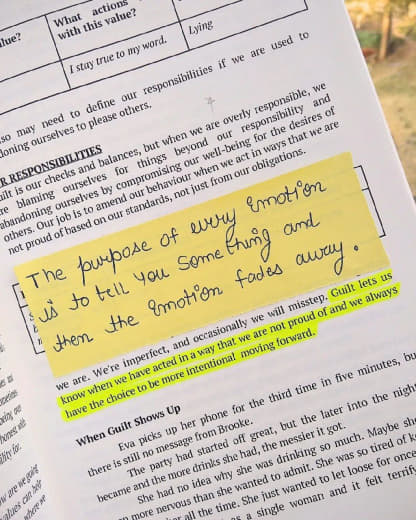 What actions
lue?
with this value?
Lying
I stay true to my word.
so may need to define our responsibilities if we are used to
doning ourselves to please others.
R RESPONSIBILITIES
uilt is our checks and balances, but when we are overly responsible, we
re blaming ourselves for things beyond our responsibility and
abandoning ourselves by compromising our well-being for the desires of
others. Our job is to amend our behaviour when we act in ways that we are
not proud of based on our standards, not just from our obligations.
The purpose of every Emotion
is to tell you Something and
then the Emotion fades away.
we are. We're imperfect, and occasionally we will misstep. Guilt lets us
know when we have acted in a way that we are not proud of and we always
have the choice to be more intentional moving forward.
When Guilt Shows Up
Eva picks up her phone for the third time in five minutes, bu
there is still no message from Brooke.
The party had started off great, but the later into the nigh
became and the more drinks she had, the messier it got.
She had no idea why she was drinking so much. Maybe she
more nervous than she wanted to admit. She was so tired of b
all the time. She just wanted to let loose for once
s a single woman and it felt terrif